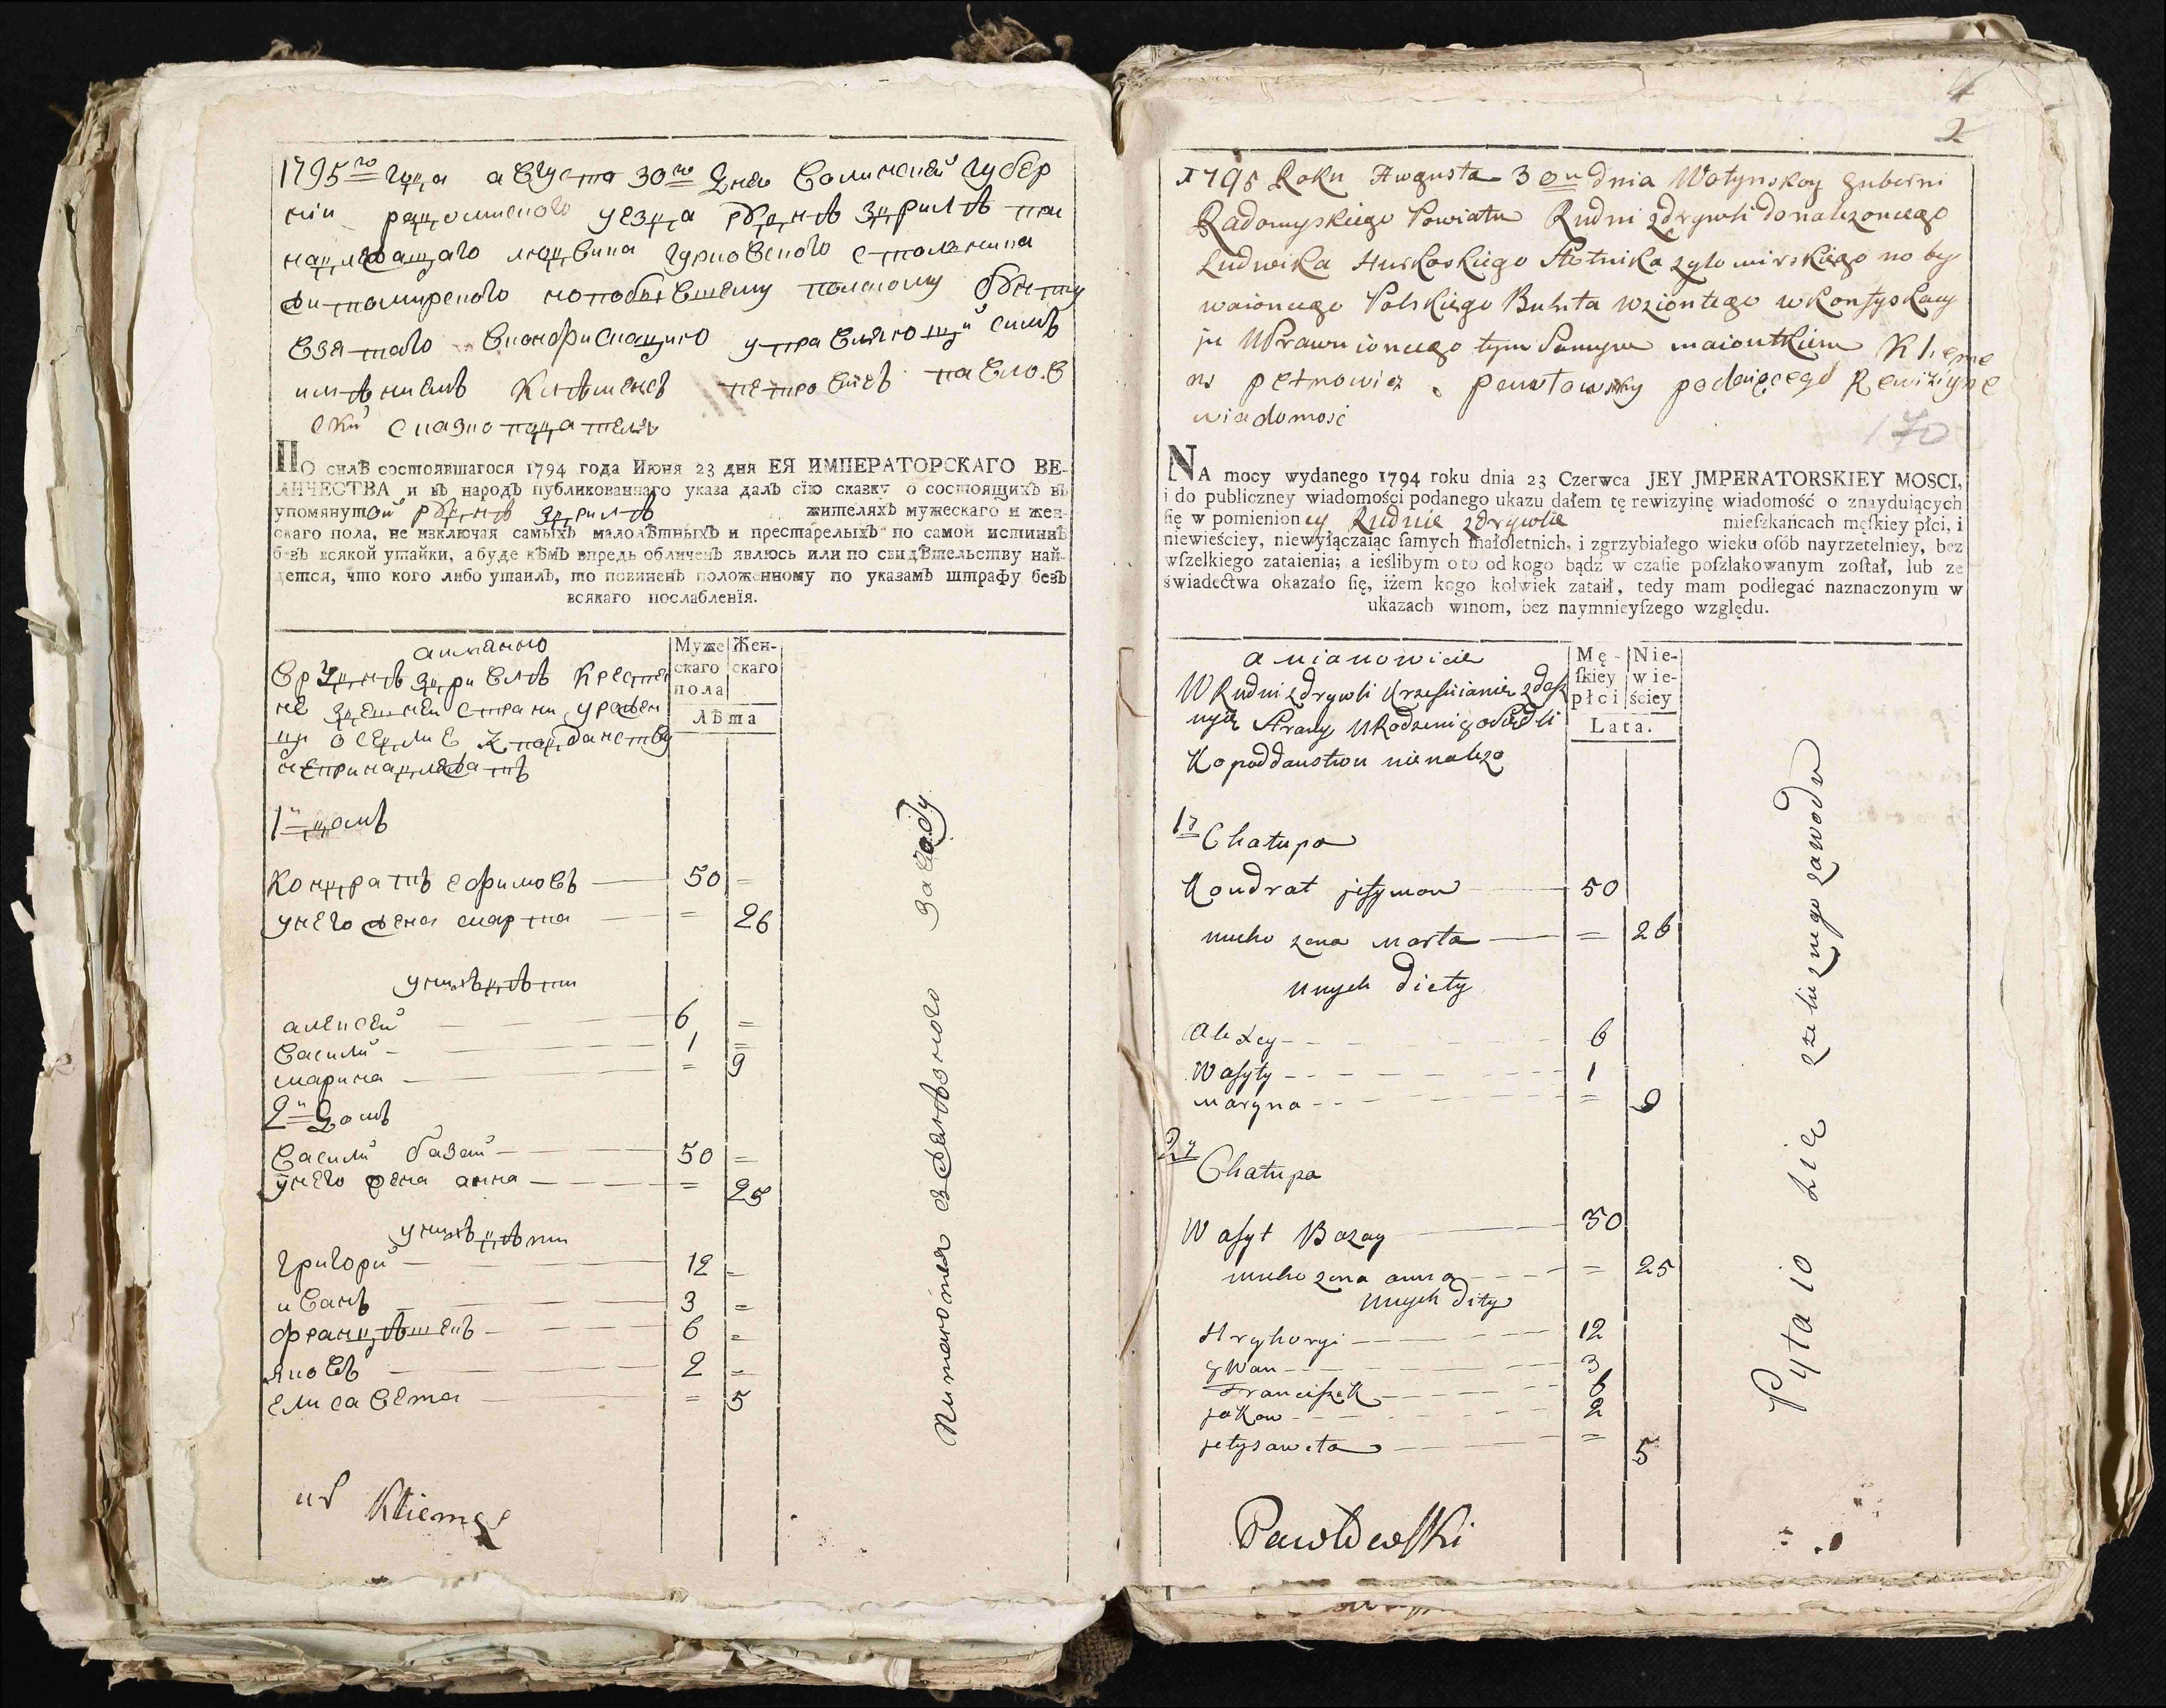 1795го года августа 30го дня волинской губер
нии радомисского уезда рудне здрилѣ при
надлежащаго людвика гурковского столника
житомирского попобывшему полскому бунту
взятаго вконфискацию управляющий симъ
имѣниемъ Клѣменсъ петровичъ павловъ
ский сказкоподатель
ПО силѣ состоявшагося 1794 года Июня 23 дня ЕЯ ИМПЕРАТОРСКАГО ВЕ-
ЛИЧЕСТВА и въ народъ публикованнаго указа далъ сїю сказку о состоящихъ въ
упомянутой рудне здрилѣ жителяхъ мужескаго и жен-
скаго пола, не изключая самыхъ малолѣтныхъ и престарелыхъ по самой истиннѣ
безъ всякой утайки, а буде кѣмъ впредь обличенъ явлюсь или по свидѣтельству най-
дется, что кого либо утаилъ, то повиненъ положенному по указамъ штрафу безъ
всякаго послабленїя.
аимянно
Врудне здривлѣ крестя
не здешней страни урожен
ци оседлие к подданству
непринадлежатъ
Муже
скаго
пола
Жен-
скаго
Лѣта
1й домъ
Кондратъ ефимовъ 50 =
унего жена марта = 26
унихъ дѣти
алексей 6 =
василий 1 =
марина = 9
2й домъ
василий базай 50 =
унего жена анна = 25
унихъ дѣти
григорий 12 =
иванъ 3 =
францѣшекъ 6 =
яковъ 2 =
елисавета = 5
Питаются зжелѣзного заводу
Kliemes
2
1795 Roku Awgusta 30u dnia Wołynskoy guberni
Radomyskiego Powiatu Rudni zdrywli donalezoncego
Ludwika Hurkoskiego Stolnika zytomirskiego no by
waioncego Polskiego Buhta wziontego w Konfyskacy
ju Uprawuioncego tym samym maiontkiem Klieme
ns petrowicz pawłowsky podaiącego Rewizijne
wiadomosć
170
NA mocy wydanego 1794 roku dnia 23 Czerwca JEY JMPERATORSKIEY MOSCI,
i do publiczney wiadomości podanego ukazu dałem tę rewizyinę wiadomość o znayduiących
ſię w pomienioney Rudnie zdrywlie mieſzkańcach męſkiey płci, i
niewieściey, niewyłączaiąc ſamych małoletnich, i zgrzybiałego wieku oſób nayrzetelniey, bez
wſzelkiego zataienia; a ieślibym o to od kogo bądź w czaſie poſzlakowanym zoſtał, lub ze
świadectwa okazało ſię, iżem kogo kolwiek zataił, tedy mam podlegać naznaczonym w
ukazach winom, bez naymnieyſzego względu.
a mianowicie
W Rudni zdrywli Krzescianie zdesz
nyię Strany Urodzency osiedli
Ko poddanstwu nienalezo
Mę-
ſkiey
płci
Nie-
wie-
ściey
Lata.
1y Chatupa
Kondrat jefymow 50
uneho zena marta = 26
unych diety
Alexey 6
Wasyly 1
maryna = 9
2y Chatupa
Wasyl Bazay 50
uneho zena anna = 25
unych dity
Hryhoryi 12
ywan 3
Franciszek 6
jakow 2
jelysaweta = 5
Pytaio sie zzelieznego zawodu
Pawłowski